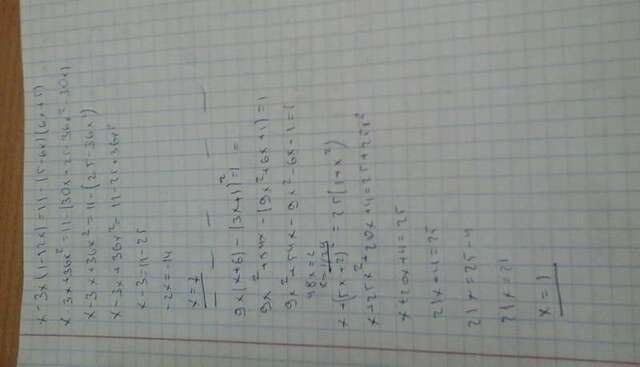 x-3x(1-12x)=11-(5-6x)(6x+5)
x-3x+36x²=11-(30x+25-36x²-30x)
x-3x+36x²=11-(25-36x²)
x-3x+36x²=11-25+36x²
x-3=11-25
-2x=-14
x=7
9x(x+6)-(3x+1)²=1 =
9x²+54x-(9x²+6x+1)=1
9x²+54x-9x²-6x-1=1
48x=2
x=1/24
x+(5x+2)²=25(1+x²)
x+25x²+20x+4=25+25x²
x+20x+4=25
21x+4=25
21x=25-4
21x=21
x=1